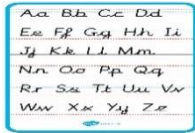 Aa Bb Cc Dd
Ee Ff Gg Hh Ii
Jj Kk Ll Mm
Nn Oo Pp Qq
Rr Ss Tt Uu Vv
Ww Xx Yy Zz